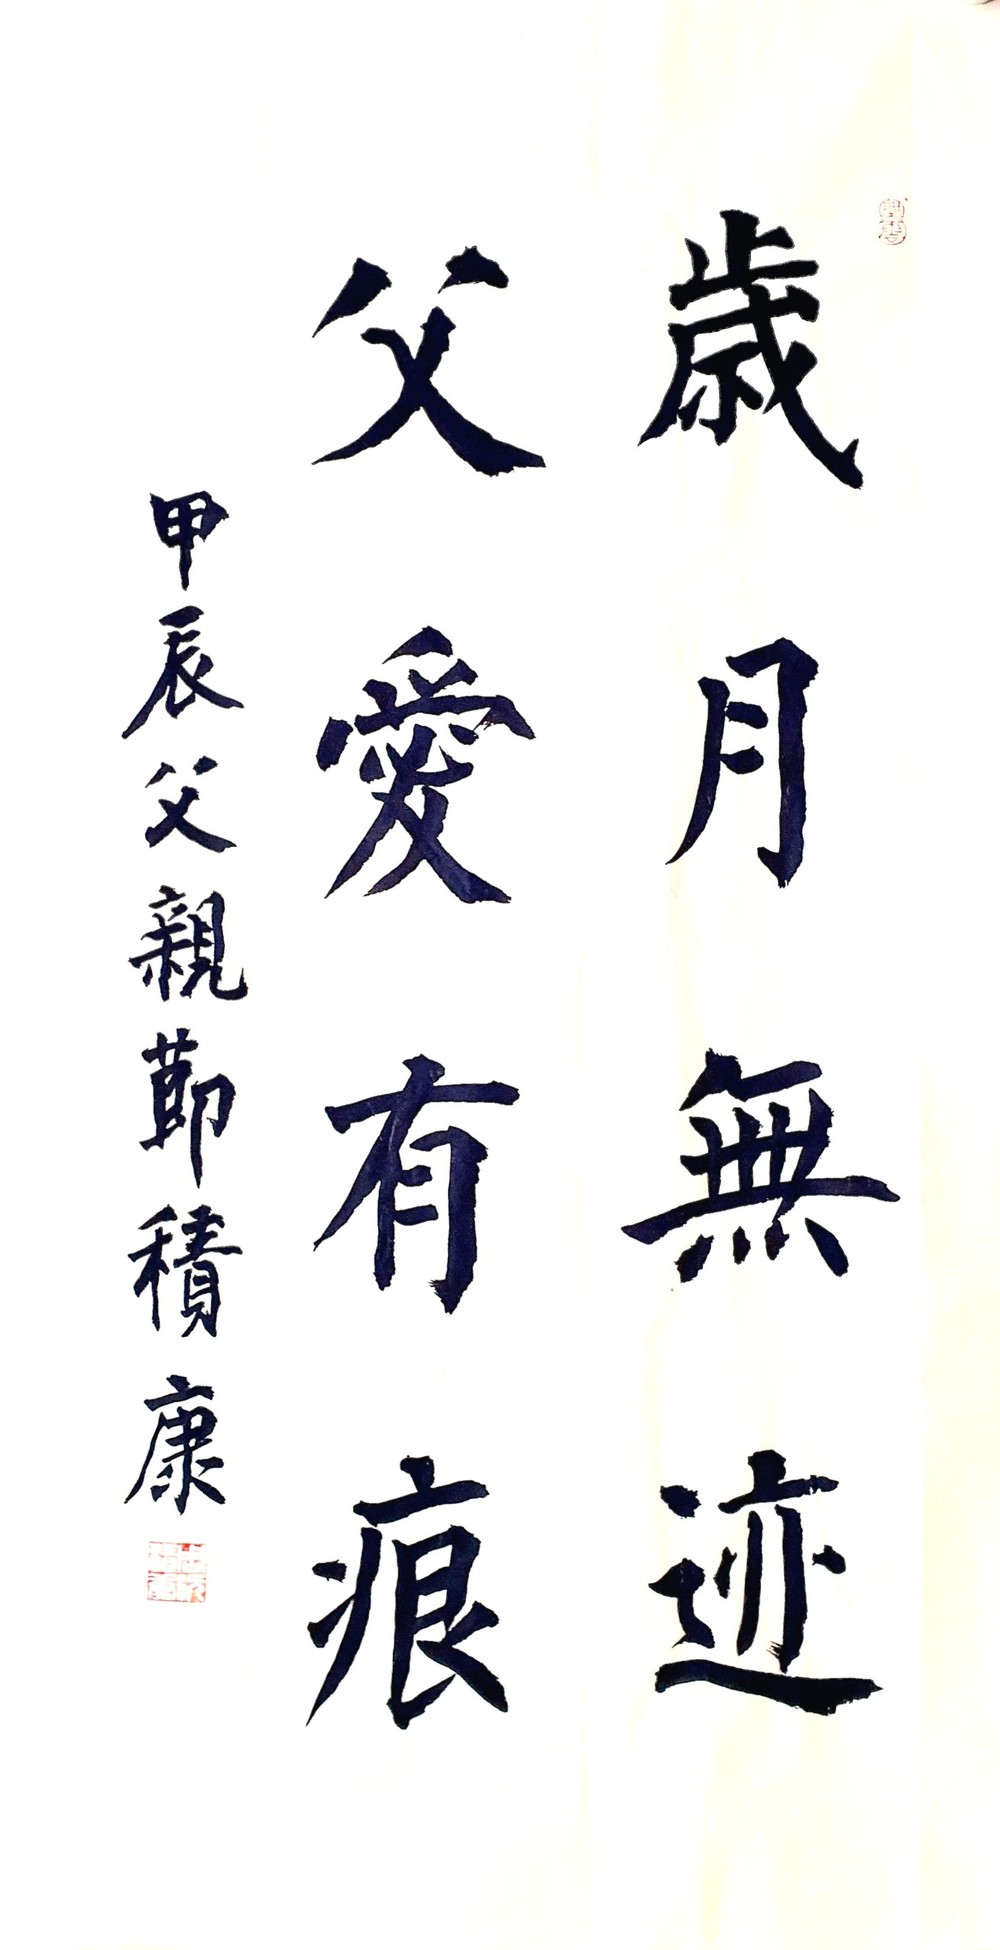 歲月無迹
父愛有痕
甲辰父親節積康